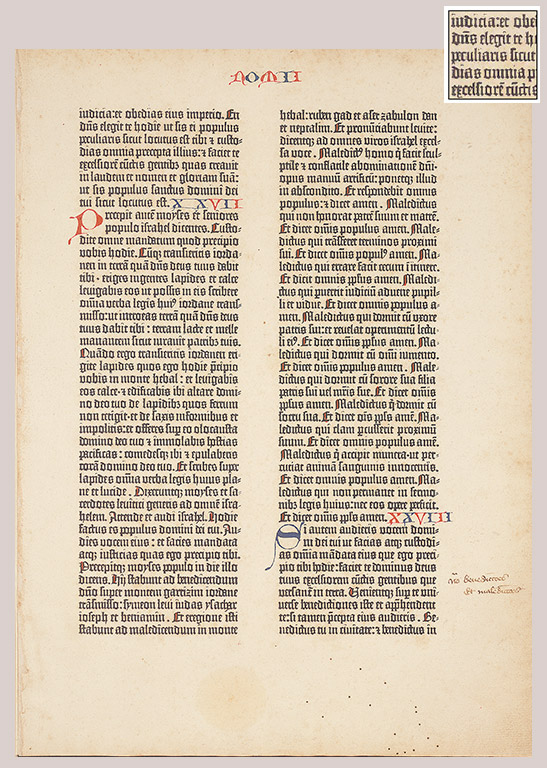 NOMII
iudicia: et obedias eius imperio. En
dñs elegit te hodie ut sis ei populus
peculiaris sicut locutus est tibi ⁊ custo-
dias omnia precepta illius: ⁊ faciet te
excelsiorē cūctis gentibus quas creauit
in laudem et nomen et gloriam suā:
ut sis populus sanctus domini dei
tui sicut locutus est. XXVII
Precepit autē moyses et seniores
populo israhel dicentes. Custo-
dite omne mandatum quod precipio
vobis hodie. Cūq; transieritis iorda-
nen in terrā quā dñs deus tuus dabit
tibi · eriges ingentes lapides et calce
leuigabis eos ut possis in eis scribere
omnia verba legis hui⁹ iordane trans-
misso: ut introeas terrā quā dñs deus
tuus dabit tibi: terram lacte et melle
manantem sicut iurauit patribus tuis.
Quādo ergo transieritis iordanen eri-
gite lapides quos ego hodie p̄cipio
vobis in monte hebal: et leuigabis
eos calce · ⁊ edificabis ibi altare domi-
no deo tuo de lapidibus quos ferrum
non tetigit · et de saxis informibus et
impolitis: et offeres sup eo olocausta
domino deo tuo ⁊ immolabis hostias
pacificas: comedesq; ibi ⁊ epulaberis
corā domino deo tuo. Et scribes supz
lapides omnia verba legis huius pla-
ne et lucide. Dixeruntq; moyses et sa-
cerdotes leuitici generis ad omnē isra-
helem. Attende et audi israhel. Hodie
factus es populus domini dei tui. Au-
dies vocem eius: et facies mandata
atq; iusticias quas ego precipio tibi.
Precepitq; moyses populo in die illo
dicens. Hij stabunt ad benedicendum
dño super montem garizim iordane
trāsmisso: symeon leui iudas ysachar
ioseph et beniamin. Et e regione isti
stabunt ad maledicendum in monte
hebal: ruben gad et aser zabulon dan
et neptalim. Et pronūciabunt leuite:
dicentq; ad omnes viros israhel excel-
sa voce. Maledict⁹ homo q̄ facit scul-
ptile ⁊ conflatile abominationē dñi ·
opus manuū artificū: ponetq; illud
in abscondito. Et respondebit omnis
populus: ⁊ dicet amen. Maledictus
qui non honorat patrē suum et matrē.
Et dicet om̄is populus amen. Male-
dictus qui trāsfert terminos proximi
sui. Et dicet omnis populus amen. Ma-
ledictus qui errare facit cecum ī itinere.
Et dicet omnis ppsus amen. Maledi-
ctus qui puertit iudiciū aduene pupil-
li et vidue. Et dicet omnis populus a-
men. Maledictus qui dormit cū uxore
patris sui: et reuelat operimentū lectu-
li ei⁹. Et dicet om̄is ppsus amen. Ma-
ledictus qui dormit cū om̄i iumento.
Et dicet omnis populus amen. Male-
dictus qui dormit cū sorore sua filia
patris sui uel mr̄is sue. Et dicet omnis
ppsus amen. Maledictus q̄ dormit cū
socru sua. Et dicet om̄s ppsus amē. Ma-
ledictus qui clam pcusserit proximū
suum. Et dicet omnis populus amē.
Maledictus q̄ accipit munera · ut per-
cuciat animā sanguinis innocentis.
Et dicet omnis populus amen. Male-
dictus qui non permanet in sermo-
nibz legis huius: nec eos opere perficit.
Et dicet omnis ppsus amen. XXVIII
Si autem audieris vocem domi-
ni dei tui ut facias atq; custodi-
as omnia mandata eius que ego preci-
pio tibi hodie: faciet te dominus deus
tuus excelsiorem cūctis gentibus que
versant in terra. Venientq; sup te uni-
uerse benedictiones iste et apphendent
te: si tamen p̄cepta eius audieris. Be-
nedictus tu in ciuitate: ⁊ benedictus in
benedictões
et maledictões
iudicia: et obe
dñs elegit te h
peculiaris sicut
dias omnia p
excelsiorē cūctis